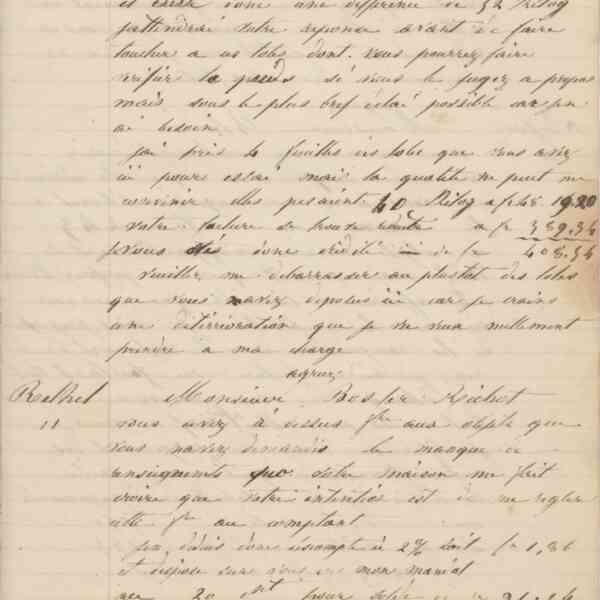 et existe donc une différence de 52 Kilog
j'attendrai votre réponse avant de faire
toucher a ces toles dont vous pourrez faire
vérifier le poids si vous le jugez a propos
mais sous le plus bref délai possible car j'en
ai besoin
j'ai pris le feuilles des tole que vous avez
ici pour essai mais la qualité ne peut me
convenir elles pesaient 40 Kilog a f 48 19.20
votre facture se trouve a fr 389.34
je vous donc crédité de fr 408.54
Veuillez me débarrasser au plustot des toles
que vous navez déposées ici car je crains
une détérioration que je ne veux nullement
prendre a ma charge
agréez
Rethel Monsieur Rosfer Richot
11 vous avez ci dessus fre aux objets que
vous mavez demandés le manque de
renseignements que votre maison me fait
croire que votre intention est de me regler
cette fre au comptant
j'en déduis donc escompte à 2% soit fr 1,86
et dispose sur vous en mon mandat
au 20 pour solde